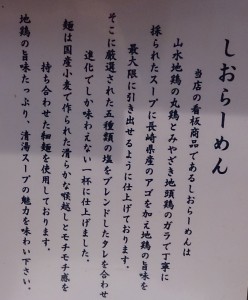 しおらーめん
当店の看板商品であるしおらーめんは
山水地鶏の丸鶏とみやざき地頭鶏のガラで丁寧に
採られたスープに長崎県産のアゴを加え地鶏の旨味を
最大限に引き出せるように仕上げております。
そこに厳選された五種類の塩をブレンドしたタレを合わせ
進化でしか味わえない一杯に仕上げました。
麺は国産小麦で作られた清らかな喉越しとモチモチ感を
持ち合わせた細麺を使用しております。
地鶏の旨味たっぷり、清湯スープの魅力を味わい下さい。